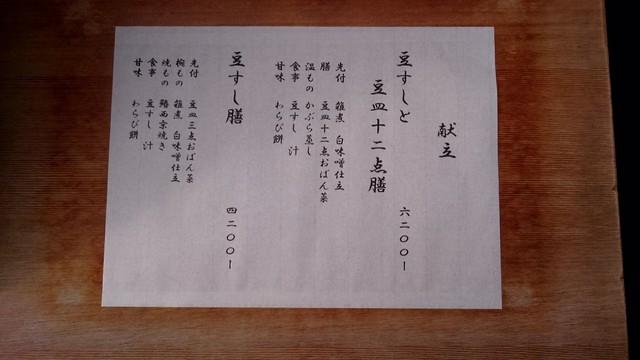 献立
豆すしと
豆皿十二点膳 六二〇〇ー
先付 雑煮 白味噌仕立
膳 豆皿十二点おばん菜
温もの かぶら蒸し
食事 豆すし 汁
甘味 わらび餅
豆すし膳 四二〇〇ー
先付 豆皿三点おばん菜
椀もの 雑煮 白味噌仕立
焼もの 鰆西京焼き
食事 豆すし 汁
甘味 わらび餅